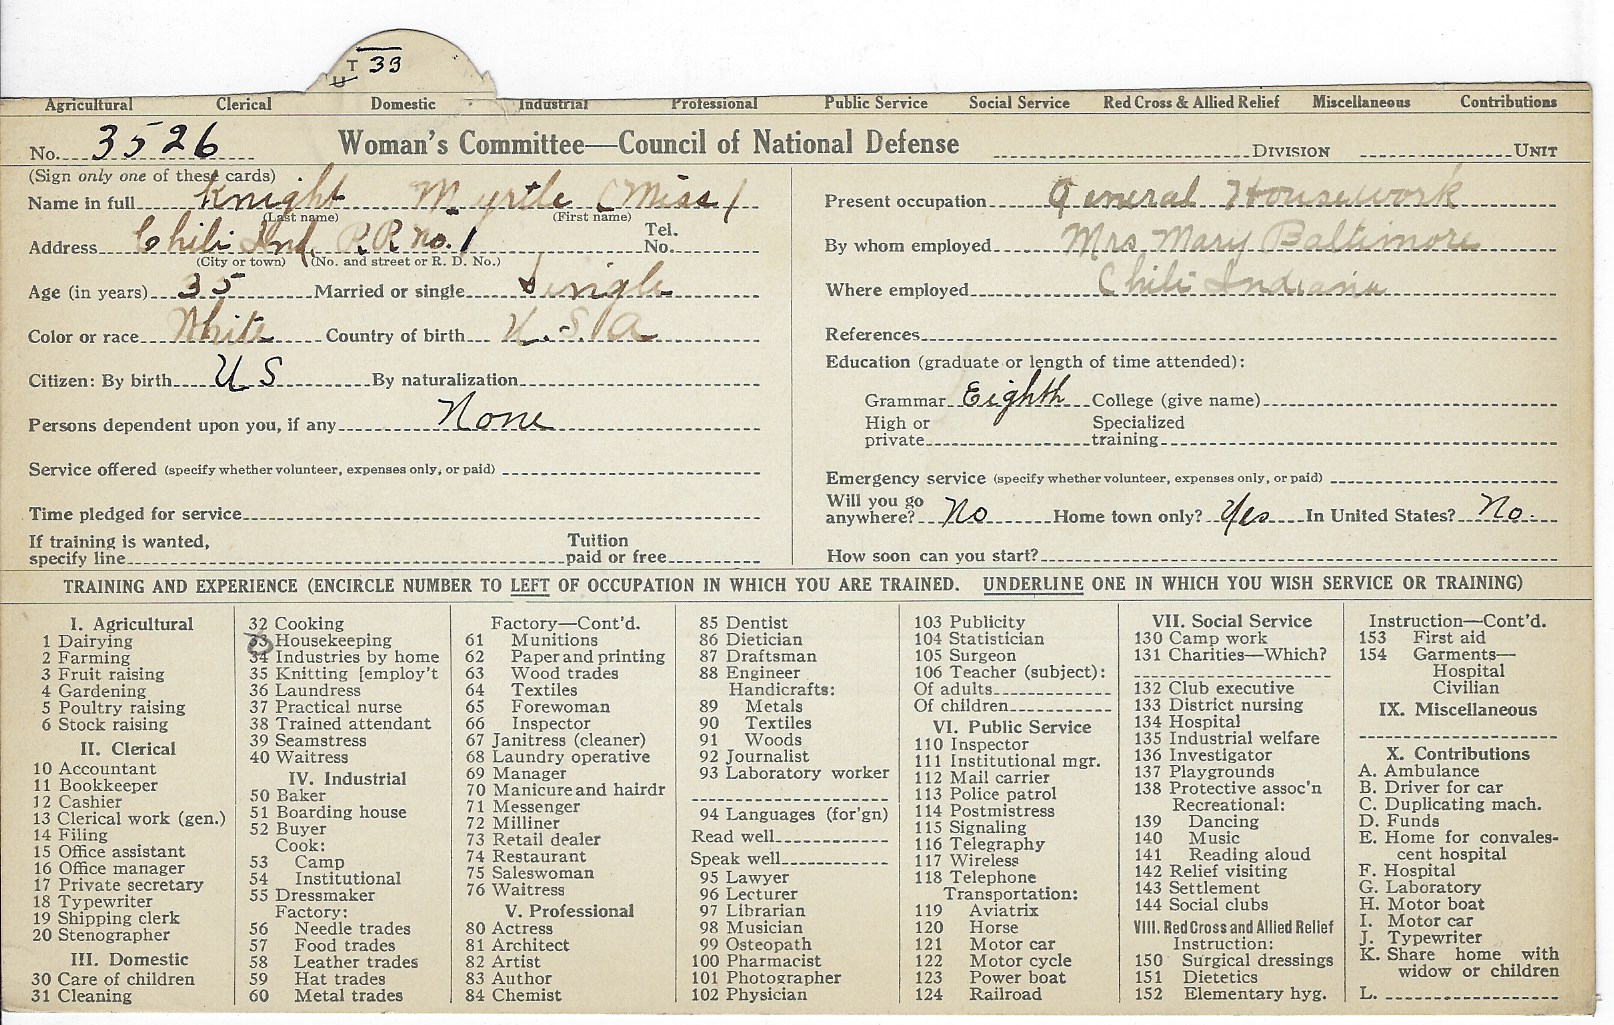 T 33
U
Agricultural Clerical Domestic Industrial Professional Public Service Social Service Red Cross & Allied Relief Miscellaneous Contributions
No. 3526 Woman's Committee—Council of National Defense DIVISION UNIT
(Sign only one of these cards)
Name in full Knight Myrtle (Miss)
(Last name) (First name)
Address Chili Ind. R.R. no. 1 Tel. No.
(City or town) (No. and street or R. D. No.)
Age (in years) 35 Married or single Single
Color or race White Country of birth U.S.A
Citizen: By birth US By naturalization
Persons dependent upon you, if any None
Service offered (specify whether volunteer, expenses only, or paid)
Time pledged for service
If training is wanted, specify line Tuition paid or free
Present occupation General Housework
By whom employed Mrs Mary Baltimore
Where employed Chili Indiana
References
Education (graduate or length of time attended):
Grammar Eighth College (give name)
High or private Specialized training
Emergency service (specify whether volunteer, expenses only, or paid)
Will you go anywhere? No Home town only? Yes In United States? No.
How soon can you start?
TRAINING AND EXPERIENCE (ENCIRCLE NUMBER TO LEFT OF OCCUPATION IN WHICH YOU ARE TRAINED. UNDERLINE ONE IN WHICH YOU WISH SERVICE OR TRAINING)
I. Agricultural
1 Dairying
2 Farming
3 Fruit raising
4 Gardening
5 Poultry raising
6 Stock raising
II. Clerical
10 Accountant
11 Bookkeeper
12 Cashier
13 Clerical work (gen.)
14 Filing
15 Office assistant
16 Office manager
17 Private secretary
18 Typewriter
19 Shipping clerk
20 Stenographer
III. Domestic
30 Care of children
31 Cleaning
32 Cooking
33 Housekeeping
34 Industries by home
35 Knitting [employ't
36 Laundress
37 Practical nurse
38 Trained attendant
39 Seamstress
40 Waitress
IV. Industrial
50 Baker
51 Boarding house
52 Buyer
Cook:
53 Camp
54 Institutional
55 Dressmaker
Factory:
56 Needle trades
57 Food trades
58 Leather trades
59 Hat trades
60 Metal trades
Factory—Cont'd.
61 Munitions
62 Paper and printing
63 Wood trades
64 Textiles
65 Forewoman
66 Inspector
67 Janitress (cleaner)
68 Laundry operative
69 Manager
70 Manicure and hairdr
71 Messenger
72 Milliner
73 Retail dealer
74 Restaurant
75 Saleswoman
76 Waitress
V. Professional
80 Actress
81 Architect
82 Artist
83 Author
84 Chemist
85 Dentist
86 Dietician
87 Draftsman
88 Engineer
Handicrafts:
89 Metals
90 Textiles
91 Woods
92 Journalist
93 Laboratory worker
94 Languages (for'gn)
Read well
Speak well
95 Lawyer
96 Lecturer
97 Librarian
98 Musician
99 Osteopath
100 Pharmacist
101 Photographer
102 Physician
103 Publicity
104 Statistician
105 Surgeon
106 Teacher (subject):
Of adults
Of children
VI. Public Service
110 Inspector
111 Institutional mgr.
112 Mail carrier
113 Police patrol
114 Postmistress
115 Signaling
116 Telegraphy
117 Wireless
118 Telephone
Transportation:
119 Aviatrix
120 Horse
121 Motor car
122 Motor cycle
123 Power boat
124 Railroad
VII. Social Service
130 Camp work
131 Charities—Which?
132 Club executive
133 District nursing
134 Hospital
135 Industrial welfare
136 Investigator
137 Playgrounds
138 Protective assoc'n
Recreational:
139 Dancing
140 Music
141 Reading aloud
142 Relief visiting
143 Settlement
144 Social clubs
VIII. Red Cross and Allied Relief
Instruction:
150 Surgical dressings
151 Dietetics
152 Elementary hyg.
Instruction—Cont'd.
153 First aid
154 Garments—
Hospital
Civilian
IX. Miscellaneous
X. Contributions
A. Ambulance
B. Driver for car
C. Duplicating mach.
D. Funds
E. Home for convales-
cent hospital
F. Hospital
G. Laboratory
H. Motor boat
I. Motor car
J. Typewriter
K. Share home with
widow or children
L.